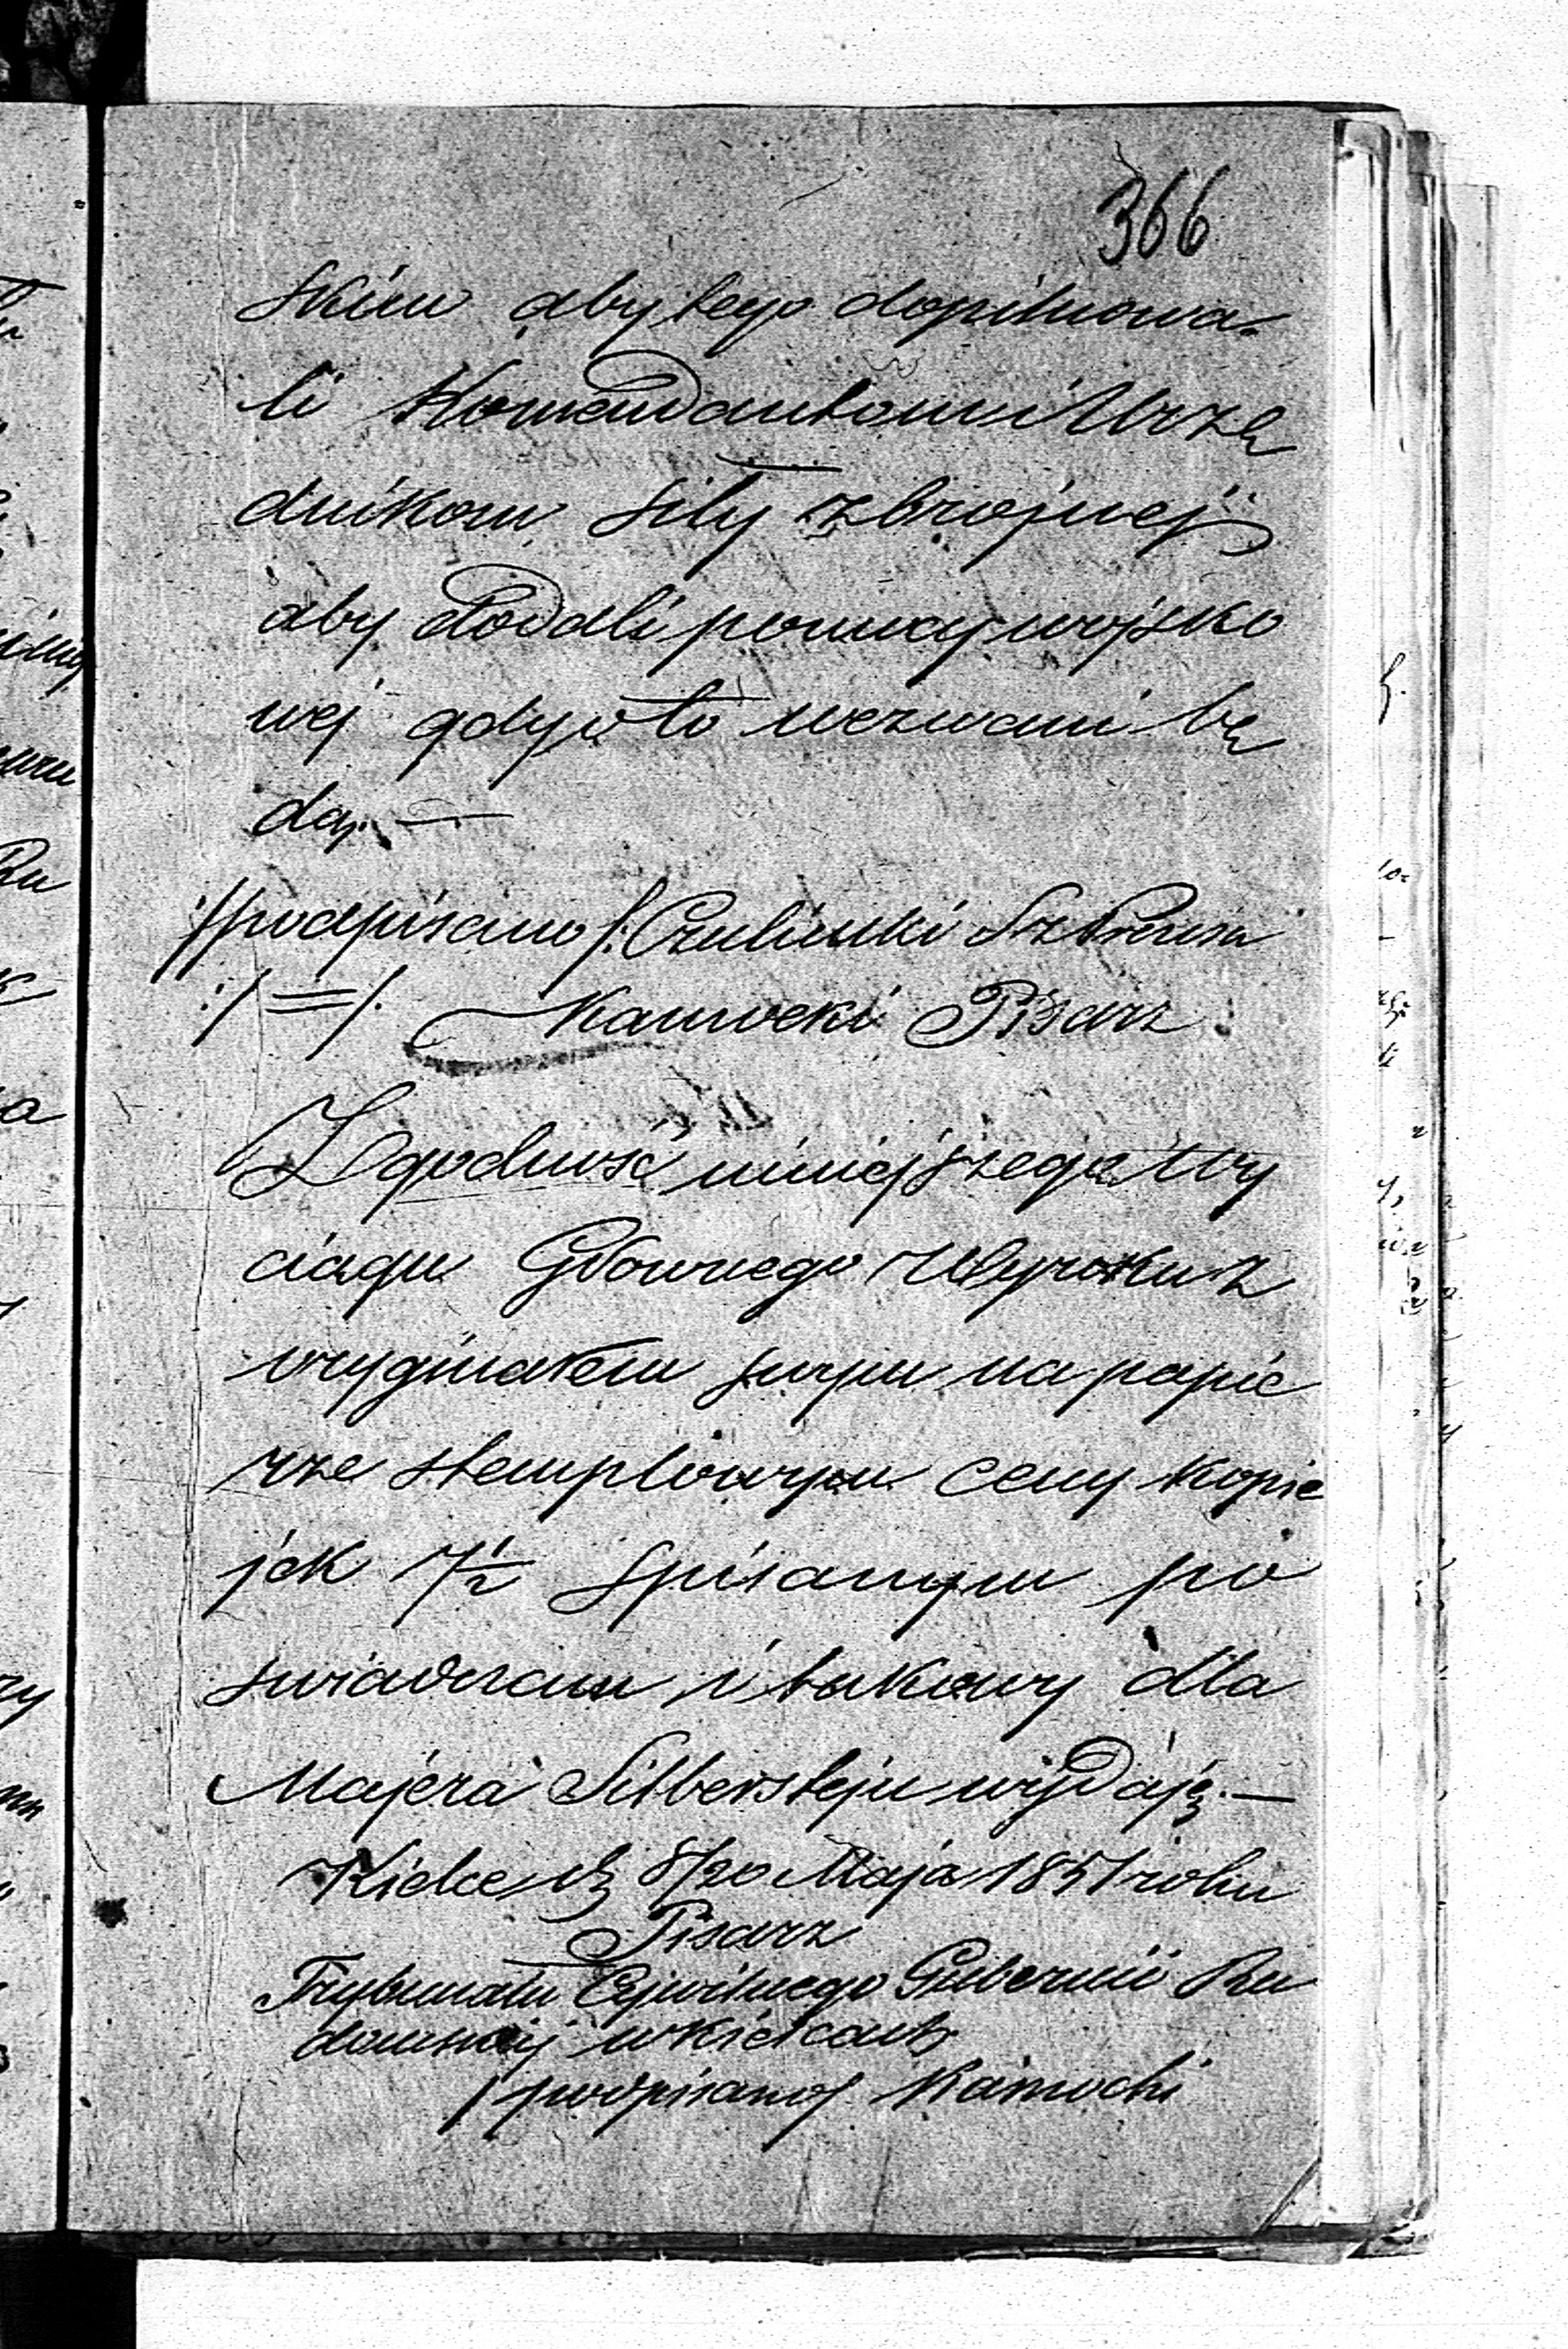 366
skim aby tego dopilnowa-
li Komendantom i Urzę
dnikom siły zbrojnej
aby dodali pomocy wojsko
wej gdy o to wezwani bę
dą. —
:/podpisano/: Czuliński Sz Prezes
:/=/: Kamocki Pisarz
Zgodność niniejszego Wy
ciągu Głownego Wyroku z
oryginałem swym na papie
rze stemplowym ceny kopie
jek 7½ spisanym po
swiadczam i takowy dla
Majera Silberstejn wydaję. —
Kielce d. 8/20 Maja 1851 roku
Pisarz
Trybunału Cywilnego Gubernii Ra
domskiej w Kielcach
/podpisano/ Kamocki